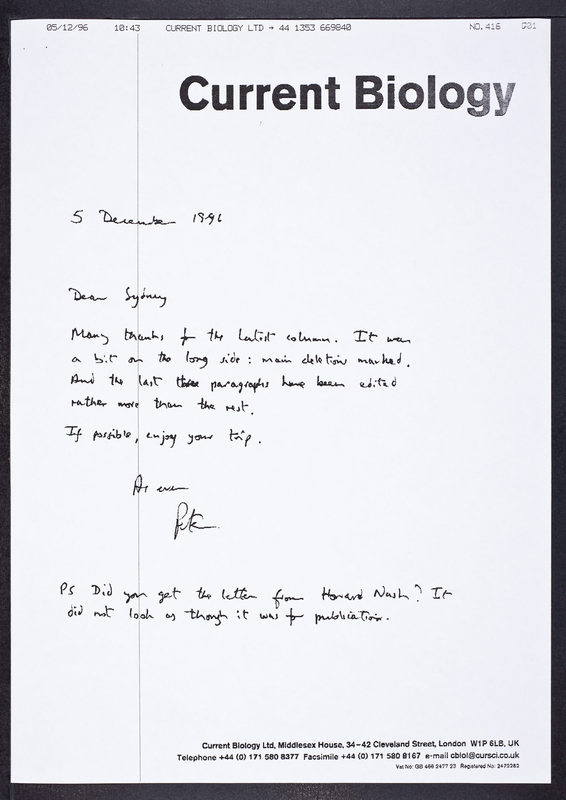 05/12/96 10:43 CURRENT BIOLOGY LTD → 44 1353 669840 NO.416 001
Current Biology
5 December 1996
Dear Sydney
Many thanks for the latest column. It was
a bit on the long side: main deletions marked.
And the last three paragraphs have been edited
rather more than the rest.
If possible, enjoy your trip.
As ever
Peter
PS Did you get the letter from Howard Nash? It
did not look as though it was for publication.
Current Biology Ltd, Middlesex House, 34–42 Cleveland Street, London W1P 6LB, UK
Telephone +44 (0) 171 580 8377 Facsimile +44 (0) 171 580 8167 e-mail cbiol@cursci.co.uk
Vat No: GB 466 2477 23 Registered No: 2472282